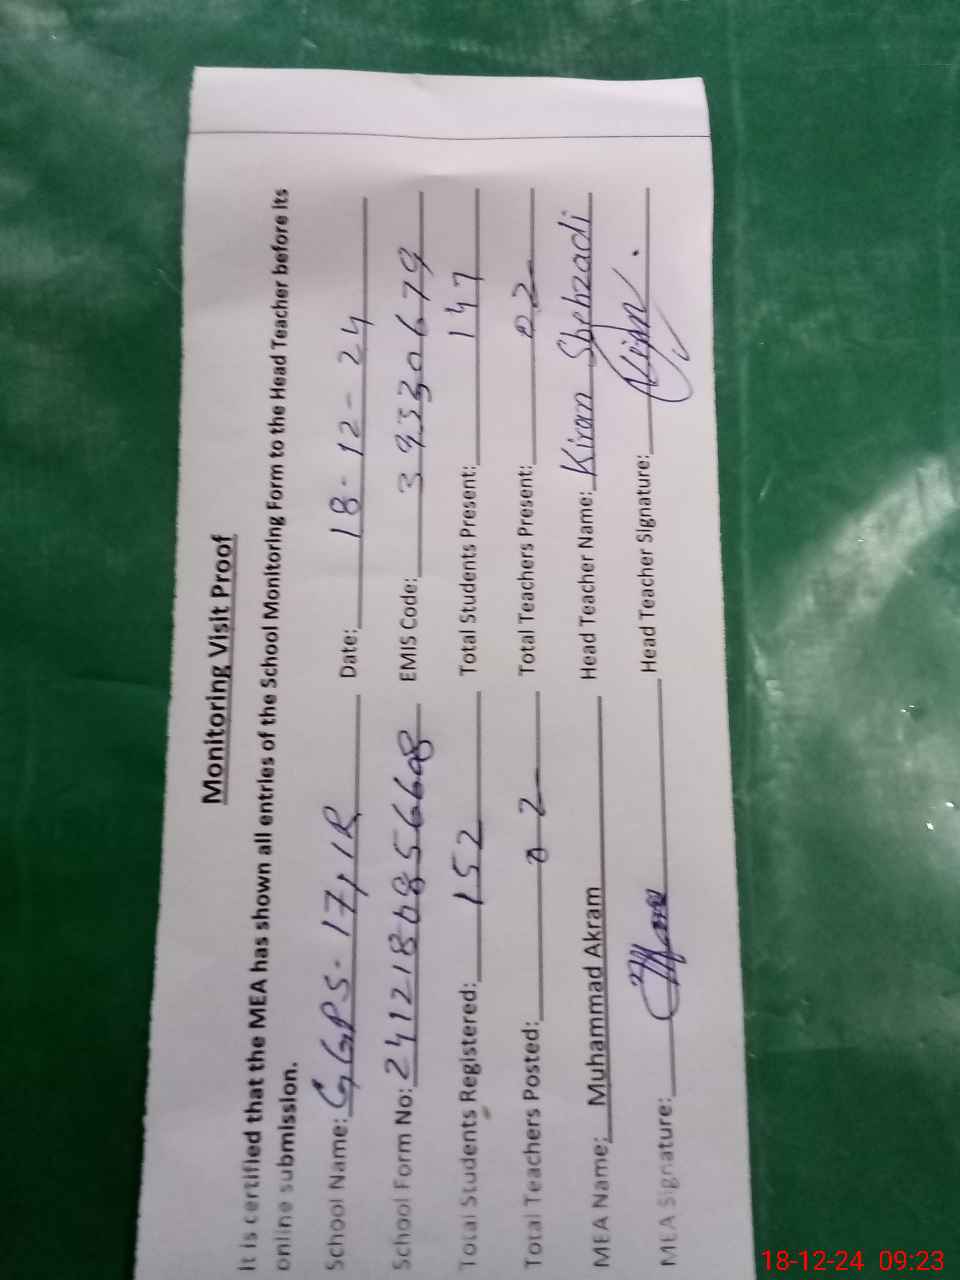 Monitoring Visit Proof
It is certified that the MEA has shown all entries of the School Monitoring Form to the Head Teacher before its
online submission.
School Name: GGPS-17,1R Date: 18-12-24
School Form No: 2412180856608 EMIS Code: 39330679
Total Students Registered: 152 Total Students Present: 147
Total Teachers Posted: 02 Total Teachers Present: 02
MEA Name: Muhammad Akram Head Teacher Name: Kiran Shehzadi
MEA Signature: Head Teacher Signature: Kiran
18-12-24 09:23